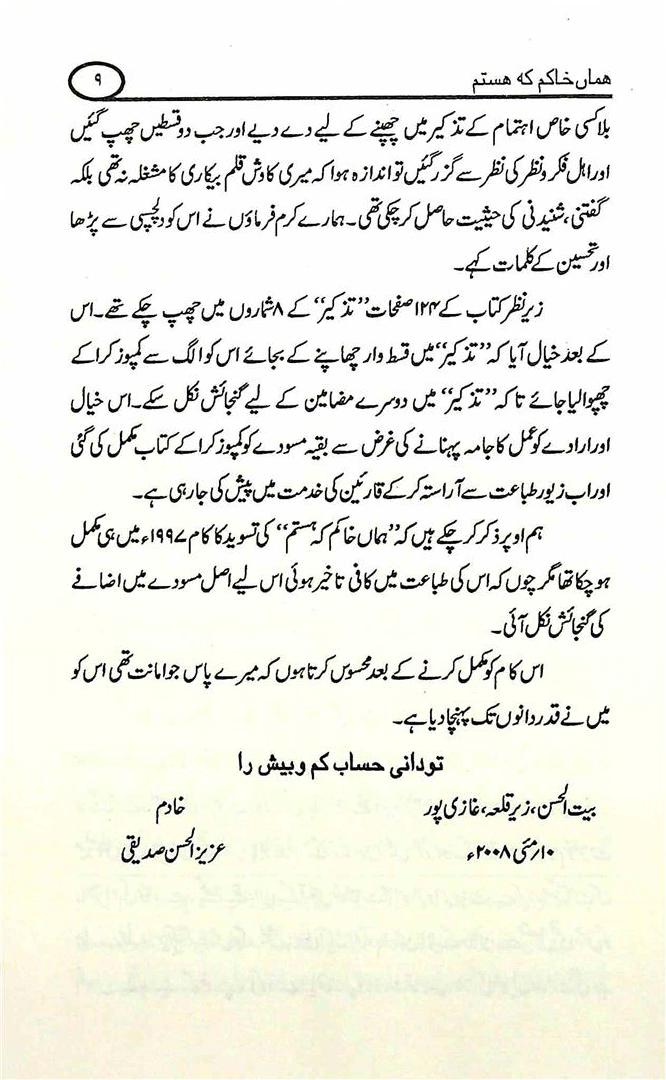 هماں خاکم که هستم ۹
بلا کسی خاص اہتمام کے تذکیر میں چھپنے کے لیے دے دیے اور جب دو قسطیں چھپ گئیں
اور اہل فکر و نظر کی نظر سے گزر گئیں تو اندازہ ہوا کہ میری کاوش قلم بیکاری کا مشغلہ نہ تھی بلکہ
گفتنی، شنیدنی کی حیثیت حاصل کر چکی تھی۔ ہمارے کرم فرماؤں نے اس کو دلچسپی سے پڑھا
اور تحسین کے کلمات کہے۔
زیر نظر کتاب کے ۱۲۴ صفحات ”تذکیر“ کے ۸ شماروں میں چھپ چکے تھے۔ اس
کے بعد خیال آیا کہ ”تذکیر“ میں قسط وار چھاپنے کے بجائے اس کو الگ سے کمپوز کرا کے
چھپوا لیا جائے تاکہ ”تذکیر“ میں دوسرے مضامین کے لیے گنجائش نکل سکے۔ اس خیال
اور ارادے کو عمل کا جامہ پہنانے کی غرض سے بقیہ مسودے کو کمپوز کرا کے کتاب مکمل کی گئی
اور اب زیور طباعت سے آراستہ کر کے قارئین کی خدمت میں پیش کی جا رہی ہے۔
ہم اوپر ذکر کر چکے ہیں کہ ”ہماں خاکم کہ ہستم“ کی تسوید کا کام ۱۹۹۷ء میں ہی مکمل
ہو چکا تھا مگر چوں کہ اس کی طباعت میں کافی تاخیر ہوئی اس لیے اصل مسودے میں اضافے
کی گنجائش نکل آئی۔
اس کام کو مکمل کرنے کے بعد محسوس کرتا ہوں کہ میرے پاس جو امانت تھی اس کو
میں نے قدر دانوں تک پہنچا دیا ہے۔
تو دانی حساب کم و بیش را
بیت الحسن، زیر قلعہ، غازی پور خادم
۱۰ مئی ۲۰۰۸ء عزیز الحسن صدیقی